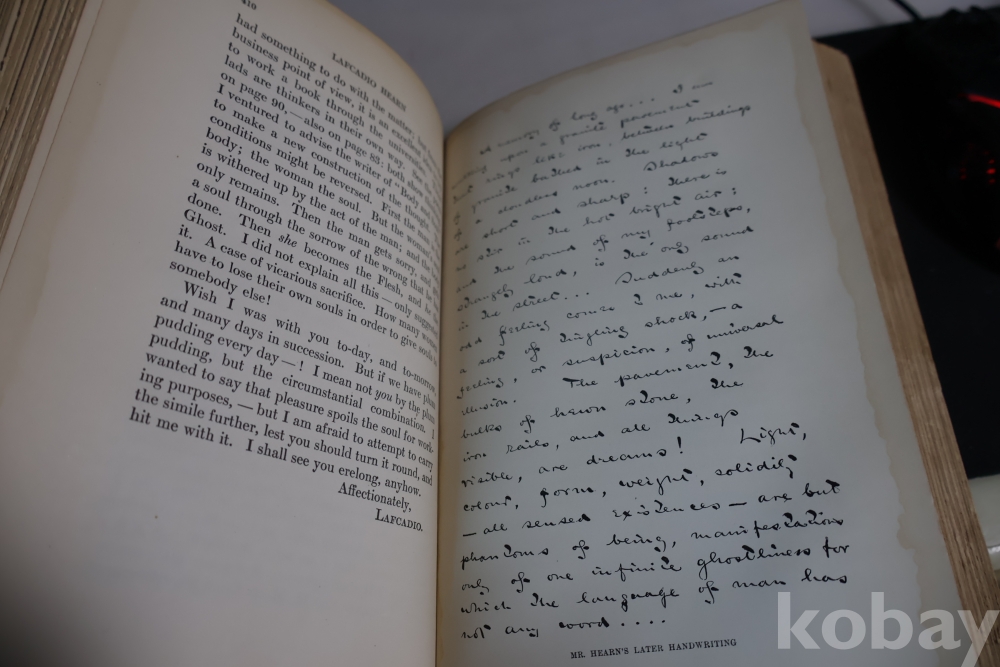 410
LAFCADIO HEARN
had something to do with the matter; but
business point of view, it is an excellent
to work a book through the universit
lads are thinkers in their own way. See the
on page 90, — also on page 83: both show
I ventured to advise the writer of "Body and
to make a new construction of the thought
conditions might be reversed. First the man
body; the woman the soul. But the woman
is withered up by the act of the man; and the
only remains. Then the man gets sorry, and
a soul through the sorrow of the wrong that he
done. Then she becomes the Flesh, and he the
Ghost. I did not explain all this — only suggested
it. A case of vicarious sacrifice. How many women
have to lose their own souls in order to give souls to
somebody else!
Wish I was with you to-day, and to-morrow
and many days in succession. But if we have plum
pudding every day — ! I mean not you by the plum
pudding, but the circumstantial combination. I
wanted to say that pleasure spoils the soul for work-
ing purposes, — but I am afraid to attempt to carry
the simile further, lest you should turn it round, and
hit me with it. I shall see you erelong, anyhow.
Affectionately,
LAFCADIO.
A memory of long ago.... I am
walking upon a granite pavement
that rings like iron, between buildings
of granite bathed in the light
of a cloudless noon. Shadows
are short and sharp: there is
no stir in the hot bright air;
and the sound of my footsteps,
strangely loud, is the only sound
in the street... Suddenly an
odd feeling comes to me, with
a sort of tingling shock, — a
feeling, or suspicion, of universal
illusion. The pavement, the
bulks of hewn stone, the
iron rails, and all things
visible, are dreams! Light,
colour, form, weight, solidity
— all sensed existences — are but
phantoms of being, manifestations
only of one infinite ghostliness for
which the language of man has
not any word....
MR. HEARN'S LATER HANDWRITING
kobay